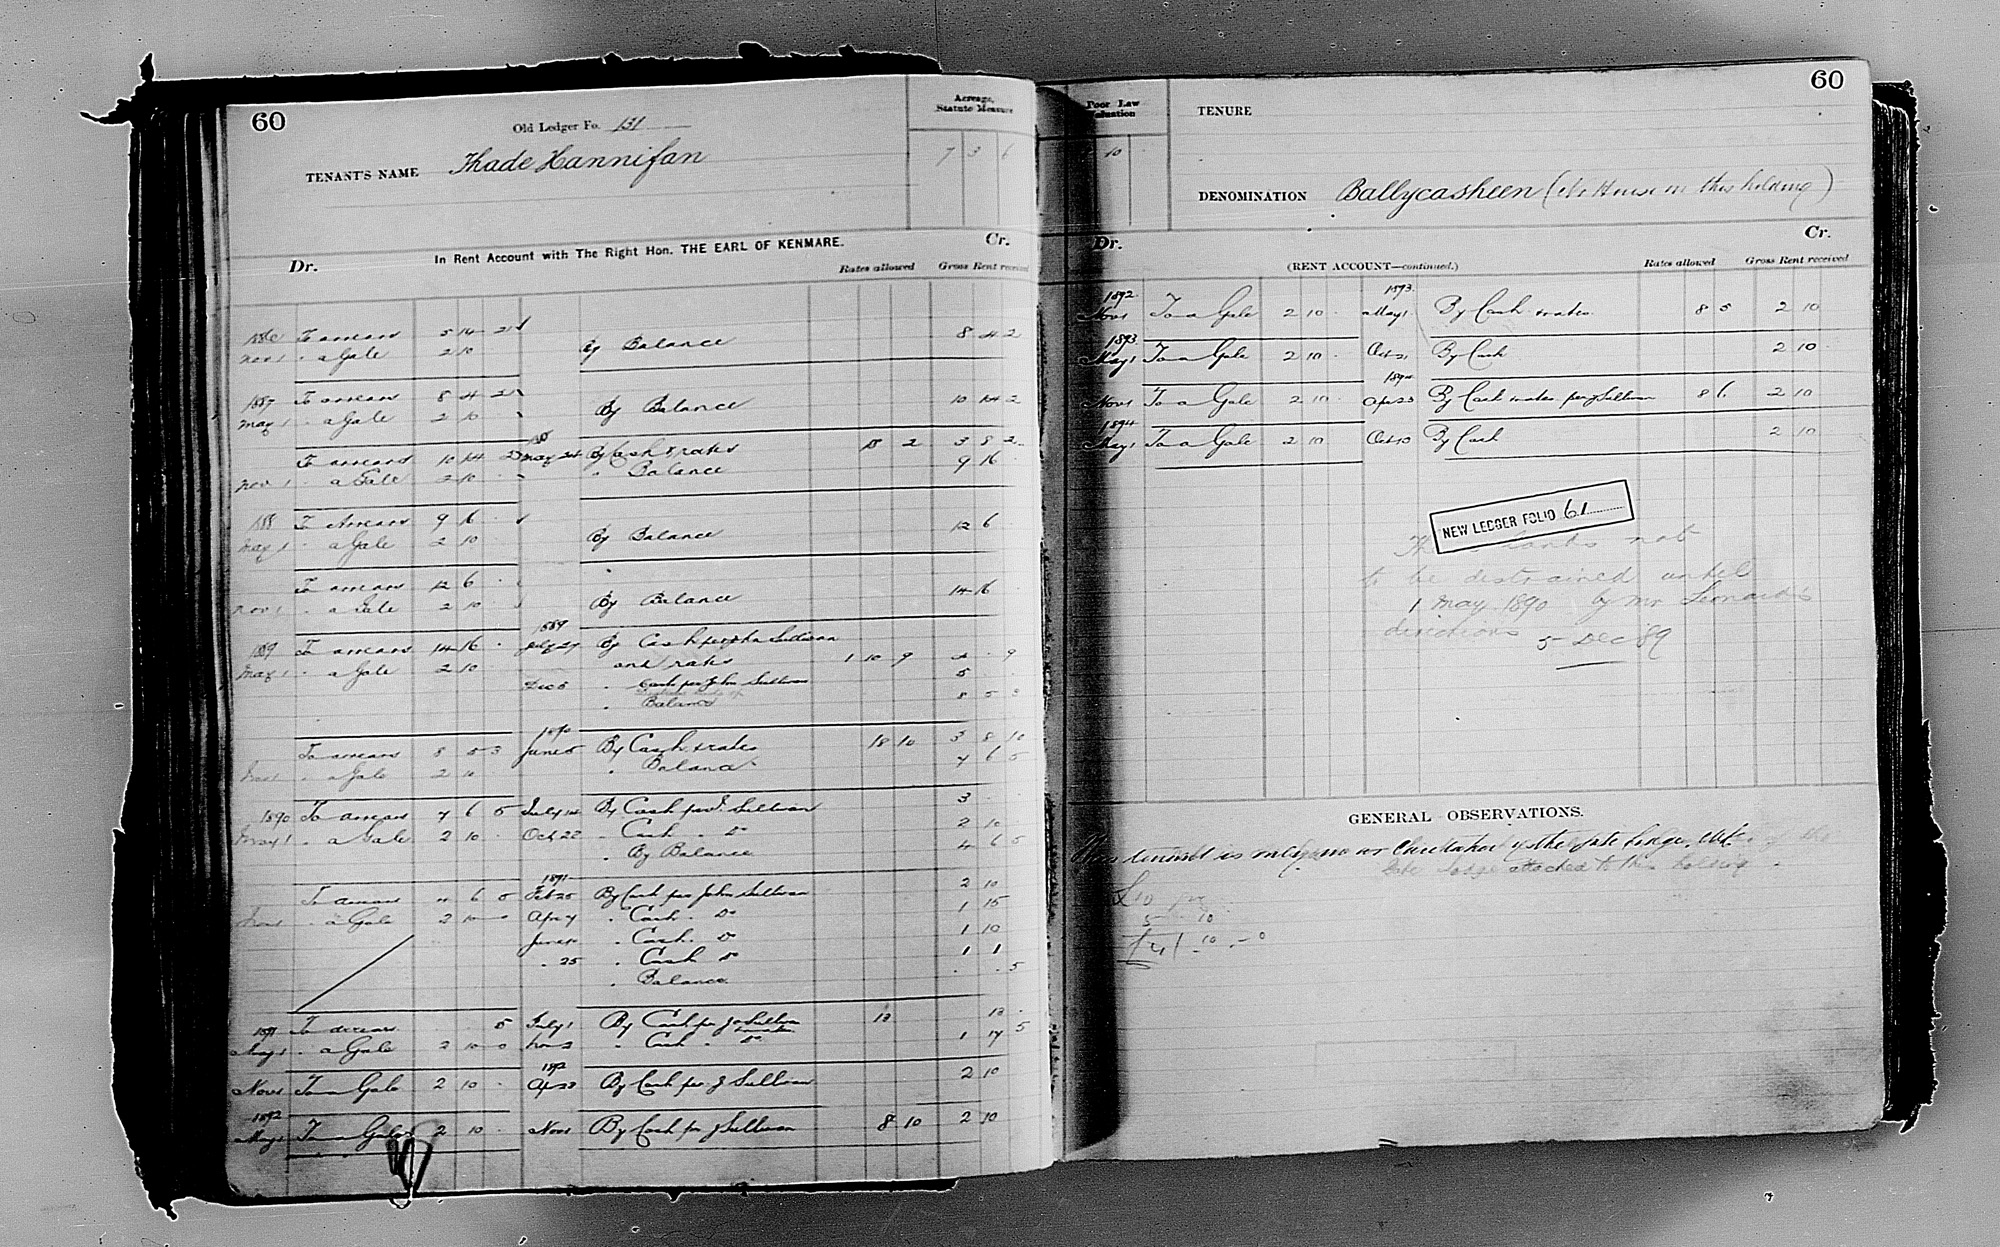 60
Old Ledger Fo. 131
Acreage, Statute Measure
TENANT'S NAME Thade Hannifan
7 3 6
In Rent Account with The Right Hon. THE EARL OF KENMARE.
Dr. Cr.
Rates allowed Gross Rent received
1886 To arrears 5 14 2
Nov 1 " a Gale 2 10 By Balance 8 4 2
1887 To arrears 8 4 2
May 1 " a Gale 2 10 By Balance 10 14 2
To arrears 10 14 2 May 24 By Cash & rates 18 2 3 8 2
Nov 1 " a Gale 2 10 " Balance 9 16
1888 To Arrears 9 16
May 1 " a Gale 2 10 By Balance 12 6
To arrears 12 6
Nov 1 " a Gale 2 10 By Balance 14 16
1889
1889 To arrears 14 16 July 27 By Cash per Jhn Sullivan
May 1 " a Gale 2 10 and rates 1 10 9 4 " 9
Dec 5 " Cash per John Sullivan 5
" Balance 8 5 3
1890
To arrears 8 5 3 June 5 By Cash & rates 18 10 3 8 10
Nov 1 " a Gale 2 10 " Balance 7 6 5
1890 To arrears 7 6 5 July 14 By Cash per J. Sullivan 3
May 1 " a Gale 2 10 Oct 22 " Cash " Do 2 10
" By Balance 4 6 5
1891
To arrears 4 6 5 Feb 25 By Cash per John Sullivan 2 10
Nov 1 " a Gale 2 10 Apr 7 " Cash " Do 1 15
June " Cash " Do 1 10
" 25 " Cash Do 1 1
" Balance 5
1891 To arrears 5 July 1 By Cash per Jn Sullivan 13 13
May 1 " a Gale 2 10 0 Nov 2 " Cash " Do 1 17 5
1892
Nov 1 To a Gale 2 10 Apr 23 By Cash per J Sullivan 2 10
1892
May 1 To a Gale 2 10 Nov 1 By Cash per J Sullivan 8 10 2 10
60
Poor Law Valuation
TENURE
10
DENOMINATION Ballycasheen (No House on this holding)
Dr. Cr.
(RENT ACCOUNT—continued.) Rates allowed Gross Rent received
1892 1893
Nov 1 To a Gale 2 10 May 1 By Cash & rates 8 5 2 10
1893
May 1 To a Gale 2 10 Oct 21 By Cash 2 10
1894
Nov 1 To a Gale 2 10 Apr 23 By Cash & rates per J Sullivan 8 6 2 10
1894
May 1 To a Gale 2 10 Oct 10 By Cash 2 10
NEW LEDGER FOLIO 61
lands not
to be distrained until
1 May 1890 by Mr Leonard's
directions 5 Dec 89
GENERAL OBSERVATIONS.
This tenant is only now Caretaker of the gate lodge
Gate lodge attached to this holding
£10
5 10